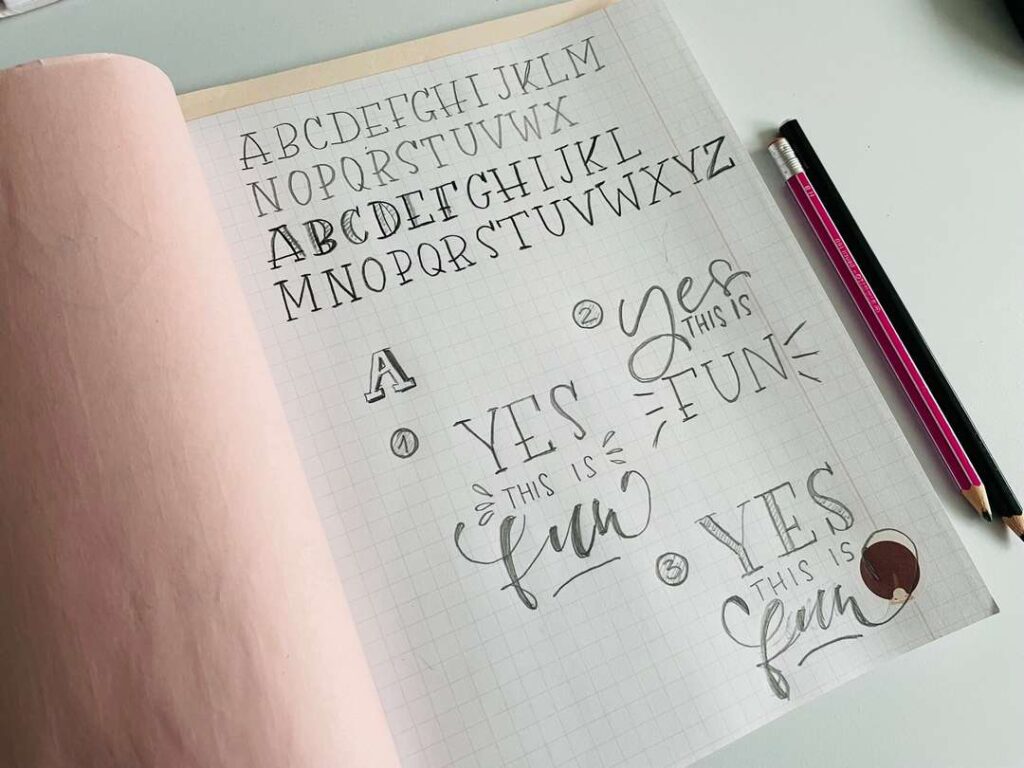 ABCDEFGHIJKLM
NOPQRSTUVWX
ABCDEFGHIJKL
MNOPQRSTUVWXYZ
A
1
YES
THIS IS
fun
2
yes
THIS IS
FUN
3
YES
THIS IS
fun